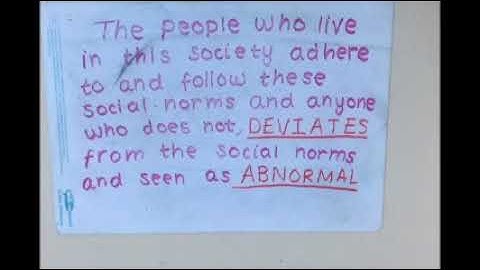 The people who live
in this society adhere
to and follow these
social norms and anyone
who does not, DEVIATES
from the social norms
and seen as ABNORMAL